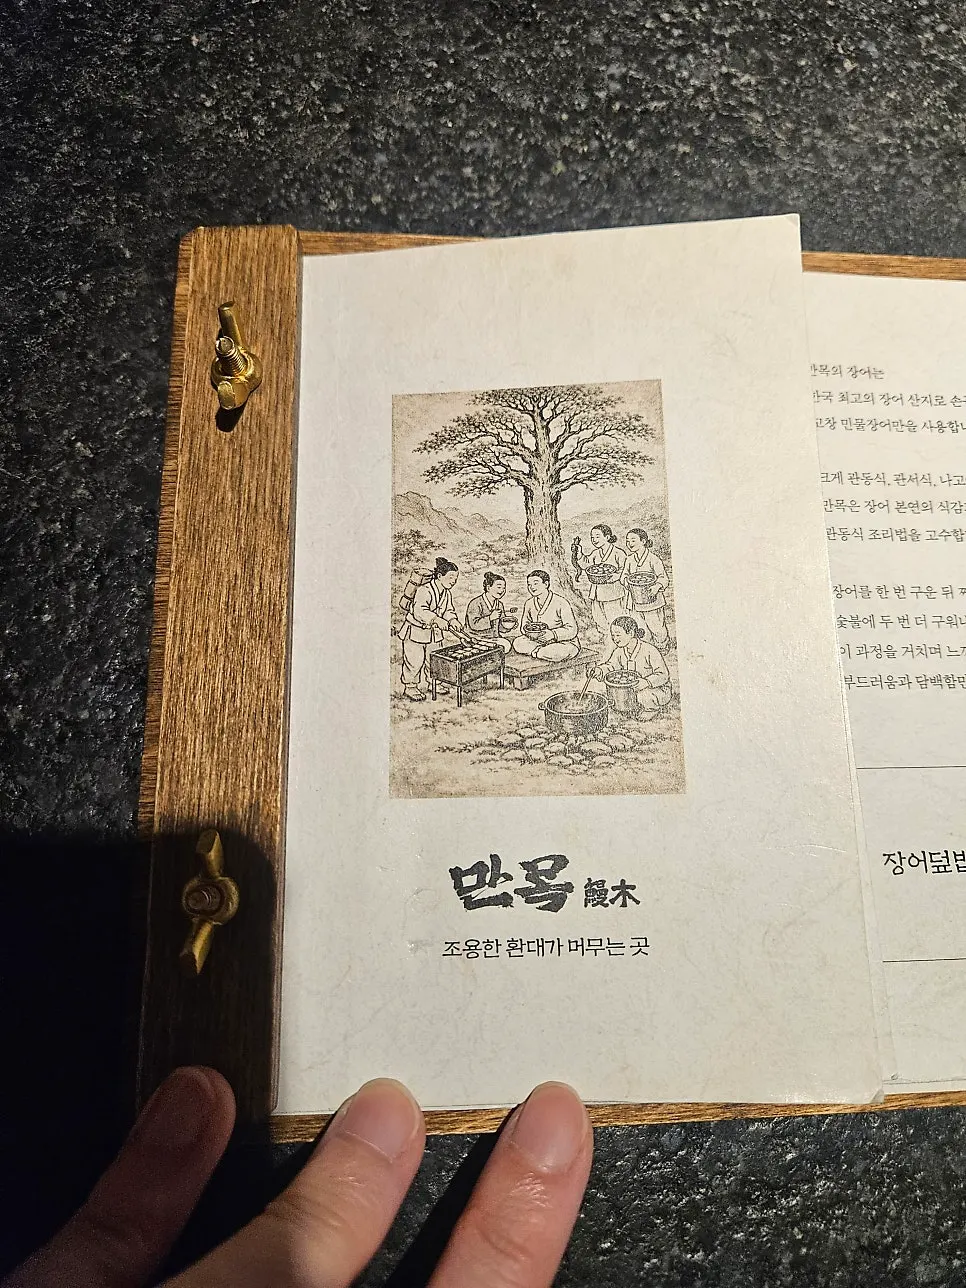 만목 鰻木
조용한 환대가 머무는 곳
만목의 장어는
한국 최고의 장어 산지로
고창 민물장어만을
크게 관동식, 관서식,
만목은 장어 본연의
관동식 조리법을
장어를 한 번 구운 뒤
숯불에 두 번 더
이 과정을 거치며
부드러움과
장어덮밥